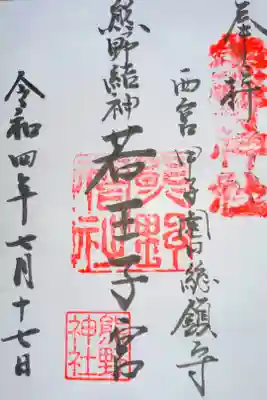 奉拝
西宮 甲子園口総鎮守
熊野結神
若王子宮
令和四年七月十七日
熊野神社